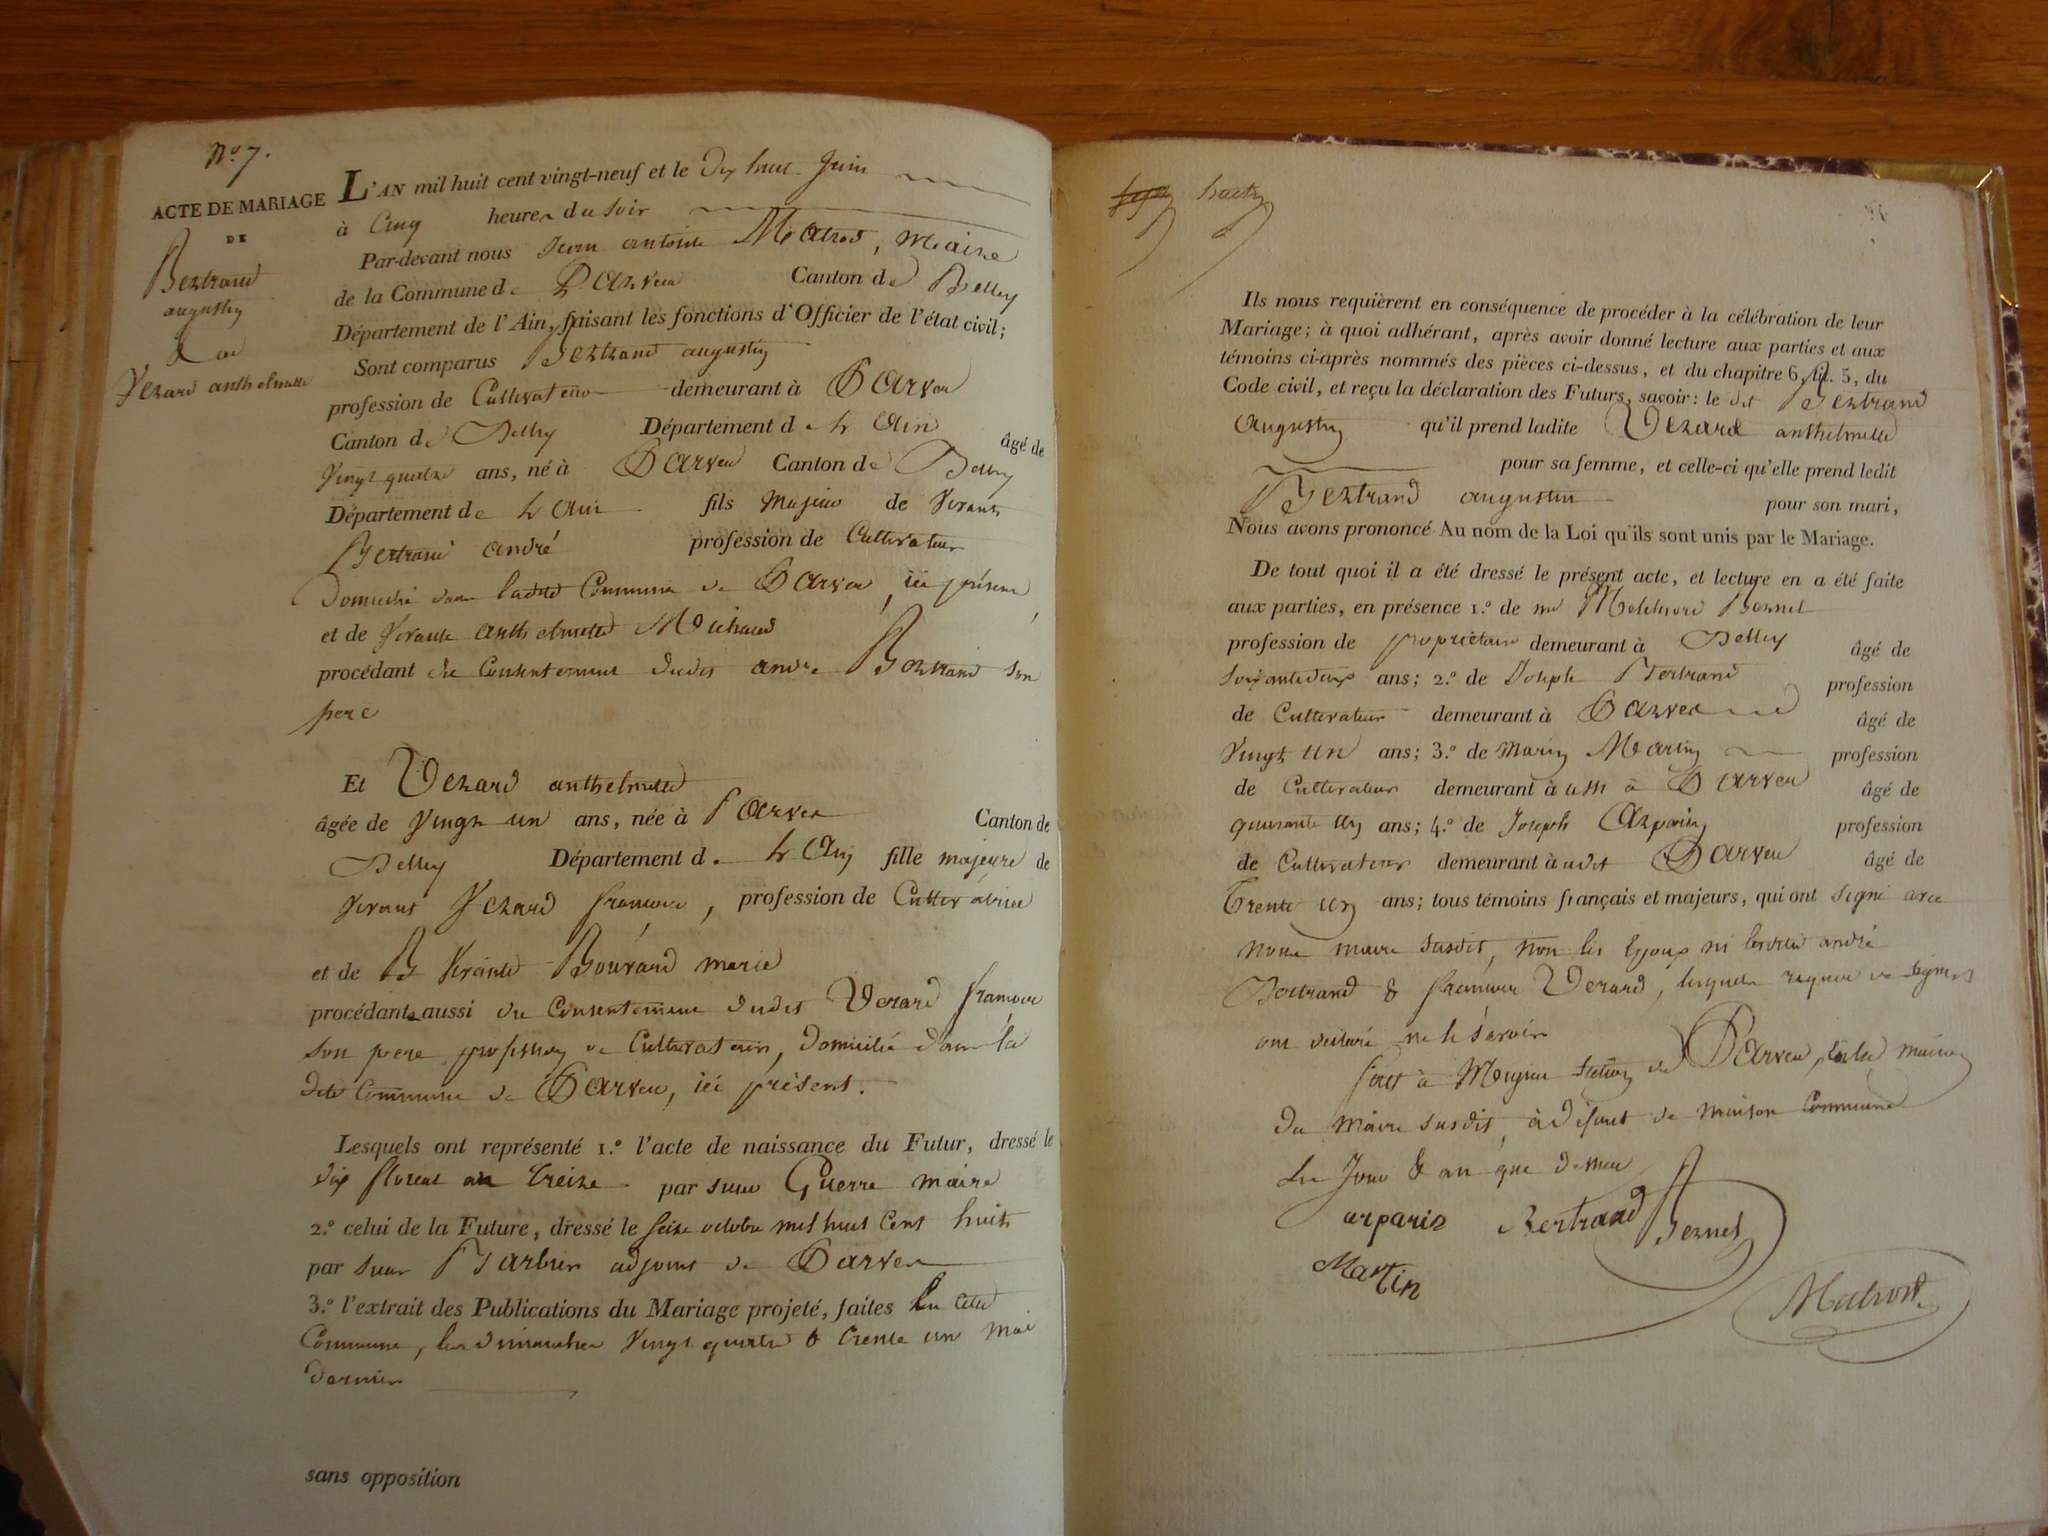 N.º 7.
ACTE DE MARIAGE
DE
Bertrand
augustin
& de
Vezard anthelmette
L'AN mil huit cent vingt-neuf et le dix huit Juin
à Cinq heures du soir
Par-devant nous Jean antoine Matrod, Maire
de la Commune de Parves Canton de Belley
Département de l'Ain, faisant les fonctions d'Officier de l'état civil;
Sont comparus Bertrand augustin
profession de Cultivateur demeurant à Parves
Canton de Belley Département de l'Ain âgé de
Vingt quatre ans, né à Parves Canton de Belley
Département de l'Ain fils Majeur de Vivants
Bertrand andré profession de Cultivateur
Domicilié dans ladite Commune de Parves, ici présent
et de Vivante anthelmette Michaud
procédant du Consentement dudit andré Bertrand son
pere
Et Vezard anthelmette
âgée de Vingt un ans, née à Parves Canton de
Belley Département de l'Ain fille majeure de
Vivant Vezard françois, profession de Cultivatrice
et de Vivante Bouvard marie
procédant aussi du Consentement dudit Vezard françois
son pere profession de Cultivateur, domicilié dans la
dite Commune de Parves, ici présent.
Lesquels ont représenté 1.º l'acte de naissance du Futur, dressé le
dix floreal an treize par sieur Guerre maire
2.º celui de la Future, dressé le seize octobre mil huit Cent huit
par sieur Barbier adjoint de Parves
3.º l'extrait des Publications du Mariage projeté, faites En cette
Commune, les dimanches Vingt quatre & trente un Mai
dernier
sans opposition
Ils nous requièrent en conséquence de procéder à la célébration de leur
Mariage; à quoi adhérant, après avoir donné lecture aux parties et aux
témoins ci-après nommés des pièces ci-dessus, et du chapitre 6, tit. 5, du
Code civil, et reçu la déclaration des Futurs, savoir: le dit Bertrand
Augustin qu'il prend ladite Vezard anthelmette
pour sa femme, et celle-ci qu'elle prend ledit
Bertrand augustin pour son mari,
Nous avons prononcé Au nom de la Loi qu'ils sont unis par le Mariage.
De tout quoi il a été dressé le présent acte, et lecture en a été faite
aux parties, en présence 1.º de mr Melchiore Bernel
profession de propriétaire demeurant à Belley âgé de
soixante deux ans; 2.º de Joseph Bertrand profession
de Cultivateur demeurant à Parves âgé de
Vingt un ans; 3.º de Marin Martin profession
de Cultivateur demeurant à ussi à Parves âgé de
quarante un ans; 4.º de Joseph Arparin profession
de Cultivateur demeurant à udit Parves âgé de
Trente un ans; tous témoins français et majeurs, qui ont signé avec
nous maire susdit, non les Epoux ni lesdits andré
Bertrand & françois Vezard, lesquels requis de signer
ont déclaré ne le savoir
fait à Meyrieu section de Parves, dans la maison
du Maire susdit, à défaut de maison Commune
les Jour & an que dessus
arparin Bertrand Bernel
Martin
Matrod